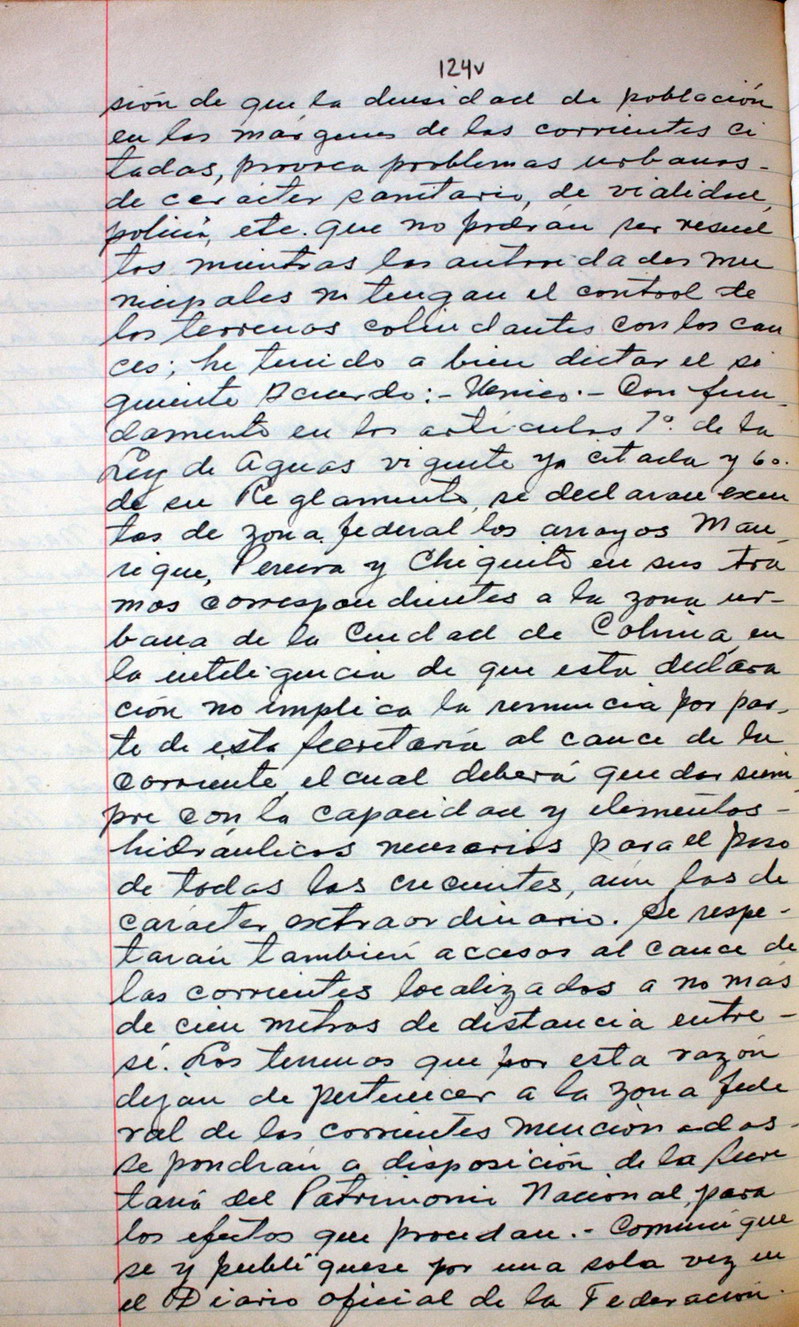 124v
sión de que la densidad de población
en las márgenes de las corrientes ci
tadas, provoca problemas urbanos-
de carácter sanitario, de vialidad,
policía, etc. que no podrán ser resuel
tos mientras las autoridades mu
nicipales no tengan el control de
los terrenos colindantes con los cau
ces; he tenido a bien dictar el si
guiente Acuerdo:- Unico.- Con fun-
damento en los artículos 7º. de la
Ley de Aguas vigente ya citada y 6o.
de su Reglamento, se declaran exen
tos de zona federal los arroyos Man-
rique, Pereira y Chiquito en sus tra
mos correspondientes a la zona ur-
bana de la Ciudad de Colima, en
la inteligencia de que esta declara
ción no implica la renuncia por par-
te de esta Secretaría al cauce de la
corriente, el cual deberá quedar siem
pre con la capacidad y elementos-
hidráulicos necesarios para el paso
de todas las crecientes, aún las de
carácter extraordinario. Se respe-
tarán también accesos al cauce de
las corrientes localizados a no más
de cien metros de distancia entre-
sí. Los terrenos que por esta razón
dejan de pertenecer a la zona fede
ral de las corrientes mencionadas-
se pondrán a disposición de la Secre
taría del Patrimonio Nacional, para
los efectos que procedan.- Comuníque
se y publíquese por una sola vez en
el Diario oficial de la Federación.